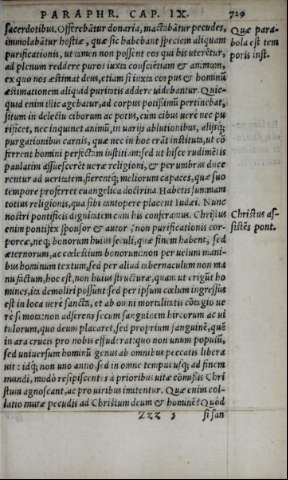 PARAPHR. CAP. IX. 729
sacerdotibus. Offerebātur donaria, mactabātur pecudes,
immolabātur hostiæ, quæ sic habebant speciem aliquam
purificationis, ut tamen non possent eos qui his uterētur,
ad plenum reddere puros iuxta conscientiam & animum,
ex quo nos æstimat deus, etiam si iuxta corpus & hominū
æstimationem aliquid puritatis addere uidebantur. Quic-
quid enim illic agebatur, ad corpus potissimū pertinebat,
situm in delectu ciborum ac potus, cum cibus uere nec pu
rificet, nec inquinet animū, in uarijs ablutionibus, alijsq;
purgationibus carnis, quæ nec in hoc erāt instituta, ut cō
ferrent homini perfectam iustitiam: sed ut hisce rudimētis
paulatim assuescerēt ueræ religioni, & per umbras duce
rentur ad ueritatem, fierentq; meliorum capaces, quæ suo
tempore proferret euangelica doctrina. Habetis summam
totius religionis, qua sibi tantopere placent Iudæi. Nunc
nostri pontificis dignitatem cum his conferamus. Christus
enim pontifex sponsor & autor, non purificationis cor-
poreæ, neq; bonorum huius seculi, quæ finem habent, sed
æternorum, ac cœlestium bonorum: non per uelum mani-
bus hominum textum, sed per aliud tabernaculum non ma
nu factum, hoc est, non huius structuræ, quam ut erigūt ho
mines, ita demoliri possunt: sed per ipsum cœlum ingressus
est in loca uerè sancta, et ab omni mortalitatis cōtagio ue
rè semota: non adferens secum sanguinem hircorum ac ui
tulorum, quo deum placaret, sed proprium sanguinē, quē
in ara crucis pro nobis effudit: atque non unum populū,
sed uniuersum hominū genus ab omnibus peccatis libera
uit: idq; non uno anno, sed in omne tempus usq; ad finem
mundi, modò resipiscentes à prioribus uitæ cōmissis Chri
stum agnoscant, ac pro uiribus imitentur. Quæ enim col-
latio mutæ pecudis ad Christum deum & hominē? Quòd
zzz 5 si san
Quæ para-
bola est tem
poris inst.
Christus as-
sistēs pont.